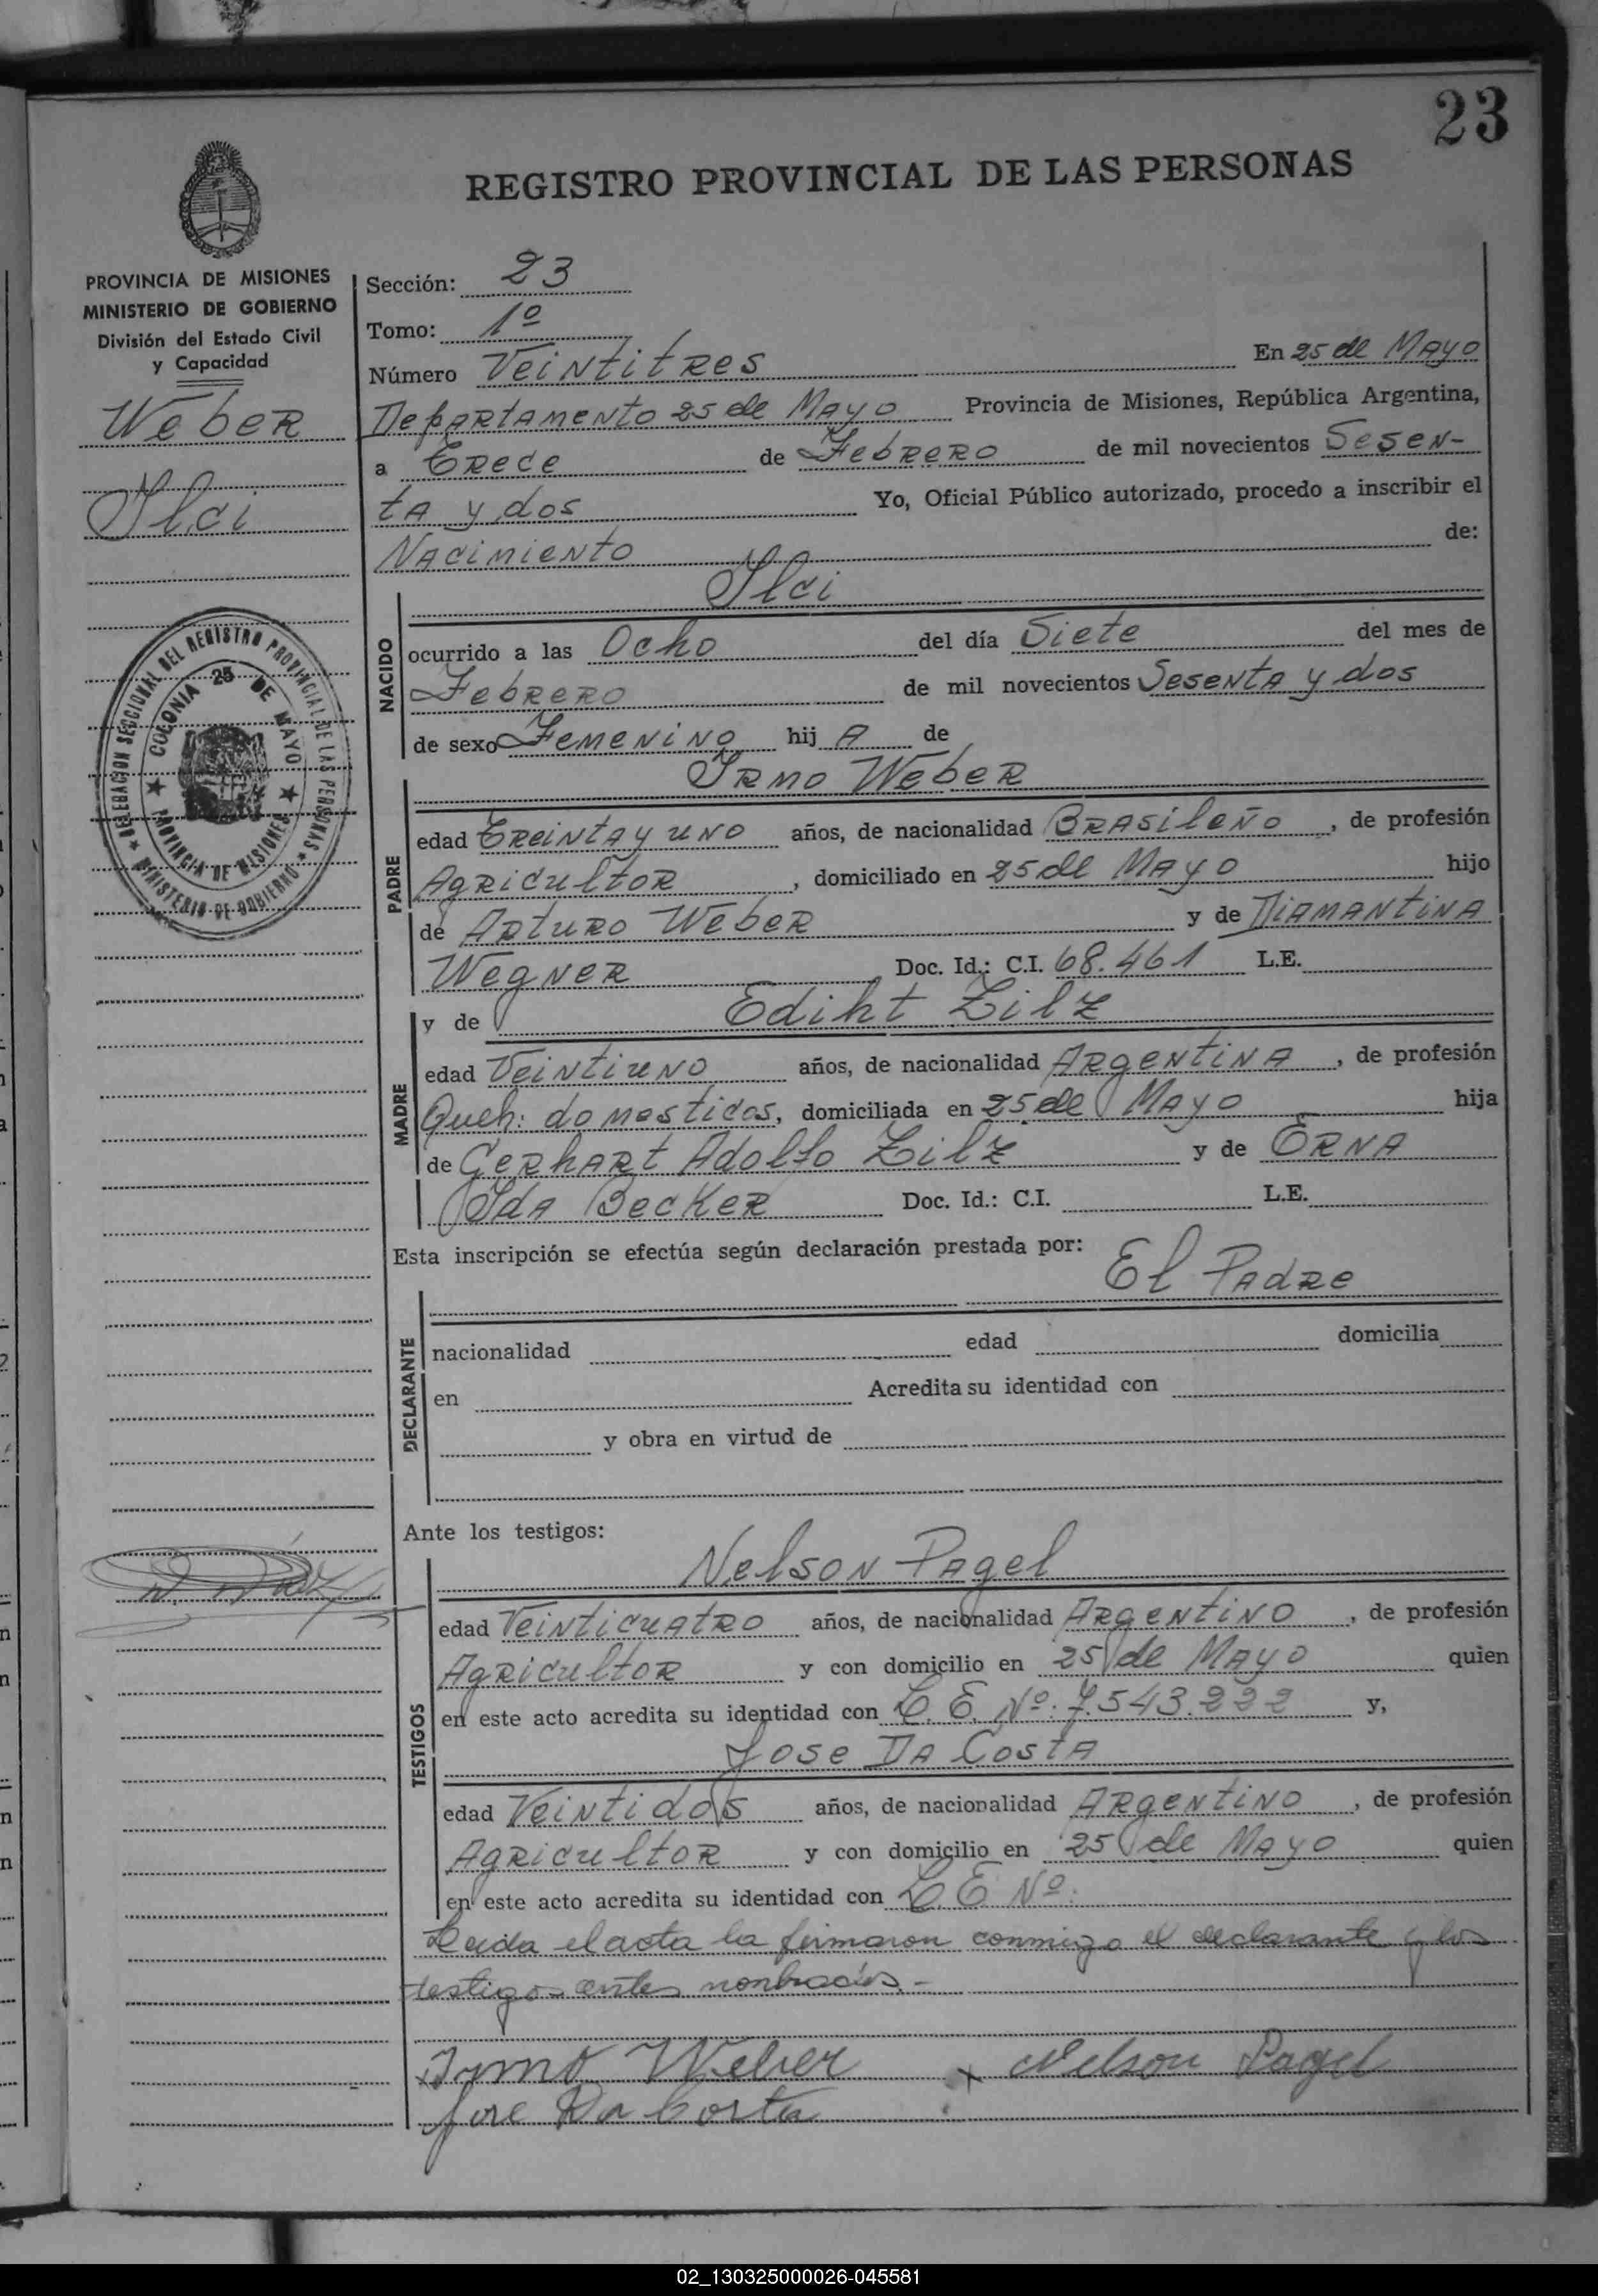 23
REGISTRO PROVINCIAL DE LAS PERSONAS
PROVINCIA DE MISIONES
MINISTERIO DE GOBIERNO
División del Estado Civil
y Capacidad
Weber
Ilci
DELEGACION SECCIONAL DEL REGISTRO PROVINCIAL DE LAS PERSONAS
★ MINISTERIO DE GOBIERNO ★
COLONIA 25 DE MAYO
★ PROVINCIA DE MISIONES ★
Sección: 23
Tomo: 1º
Número Veintitres En 25 de Mayo
Departamento 25 de Mayo Provincia de Misiones, República Argentina,
a Trece de Febrero de mil novecientos Sesen-
ta y dos Yo, Oficial Público autorizado, procedo a inscribir el
Nacimiento de:
NACIDO
Ilci
ocurrido a las Ocho del día Siete del mes de
Febrero de mil novecientos Sesenta y dos
de sexo Femenino hij A de
PADRE
Irmo Weber
edad Treinta y uno años, de nacionalidad Brasileño, de profesión
Agricultor, domiciliado en 25 de Mayo hijo
de Arturo Weber y de Diamantina
Wegner Doc. Id.: C.I. 68.461 L.E.
MADRE
y de Ediht Zilz
edad Veintiuno años, de nacionalidad Argentina, de profesión
Queh: domesticos, domiciliada en 25 de Mayo hija
de Gerhart Adolfo Zilz y de Erna
Ida Becker Doc. Id.: C.I. L.E.
Esta inscripción se efectúa según declaración prestada por:
El Padre
DECLARANTE
nacionalidad edad domicilia
en Acredita su identidad con
y obra en virtud de
Ante los testigos:
TESTIGOS
Nelson Pagel
edad Veinticuatro años, de nacionalidad Argentino, de profesión
Agricultor y con domicilio en 25 de Mayo quien
en este acto acredita su identidad con L.E. Nº: 7.543.222 y,
Jose Da Costa
edad Veintidos años, de nacionalidad Argentino, de profesión
Agricultor y con domicilio en 25 de Mayo quien
en este acto acredita su identidad con L.E. Nº:
Leida el acta la firmaron conmigo el declarante y los
testigos antes nonbrados.-
x Irmo Weber x Nelson Pagel
Jose Da Costa
02_130325000026-045581